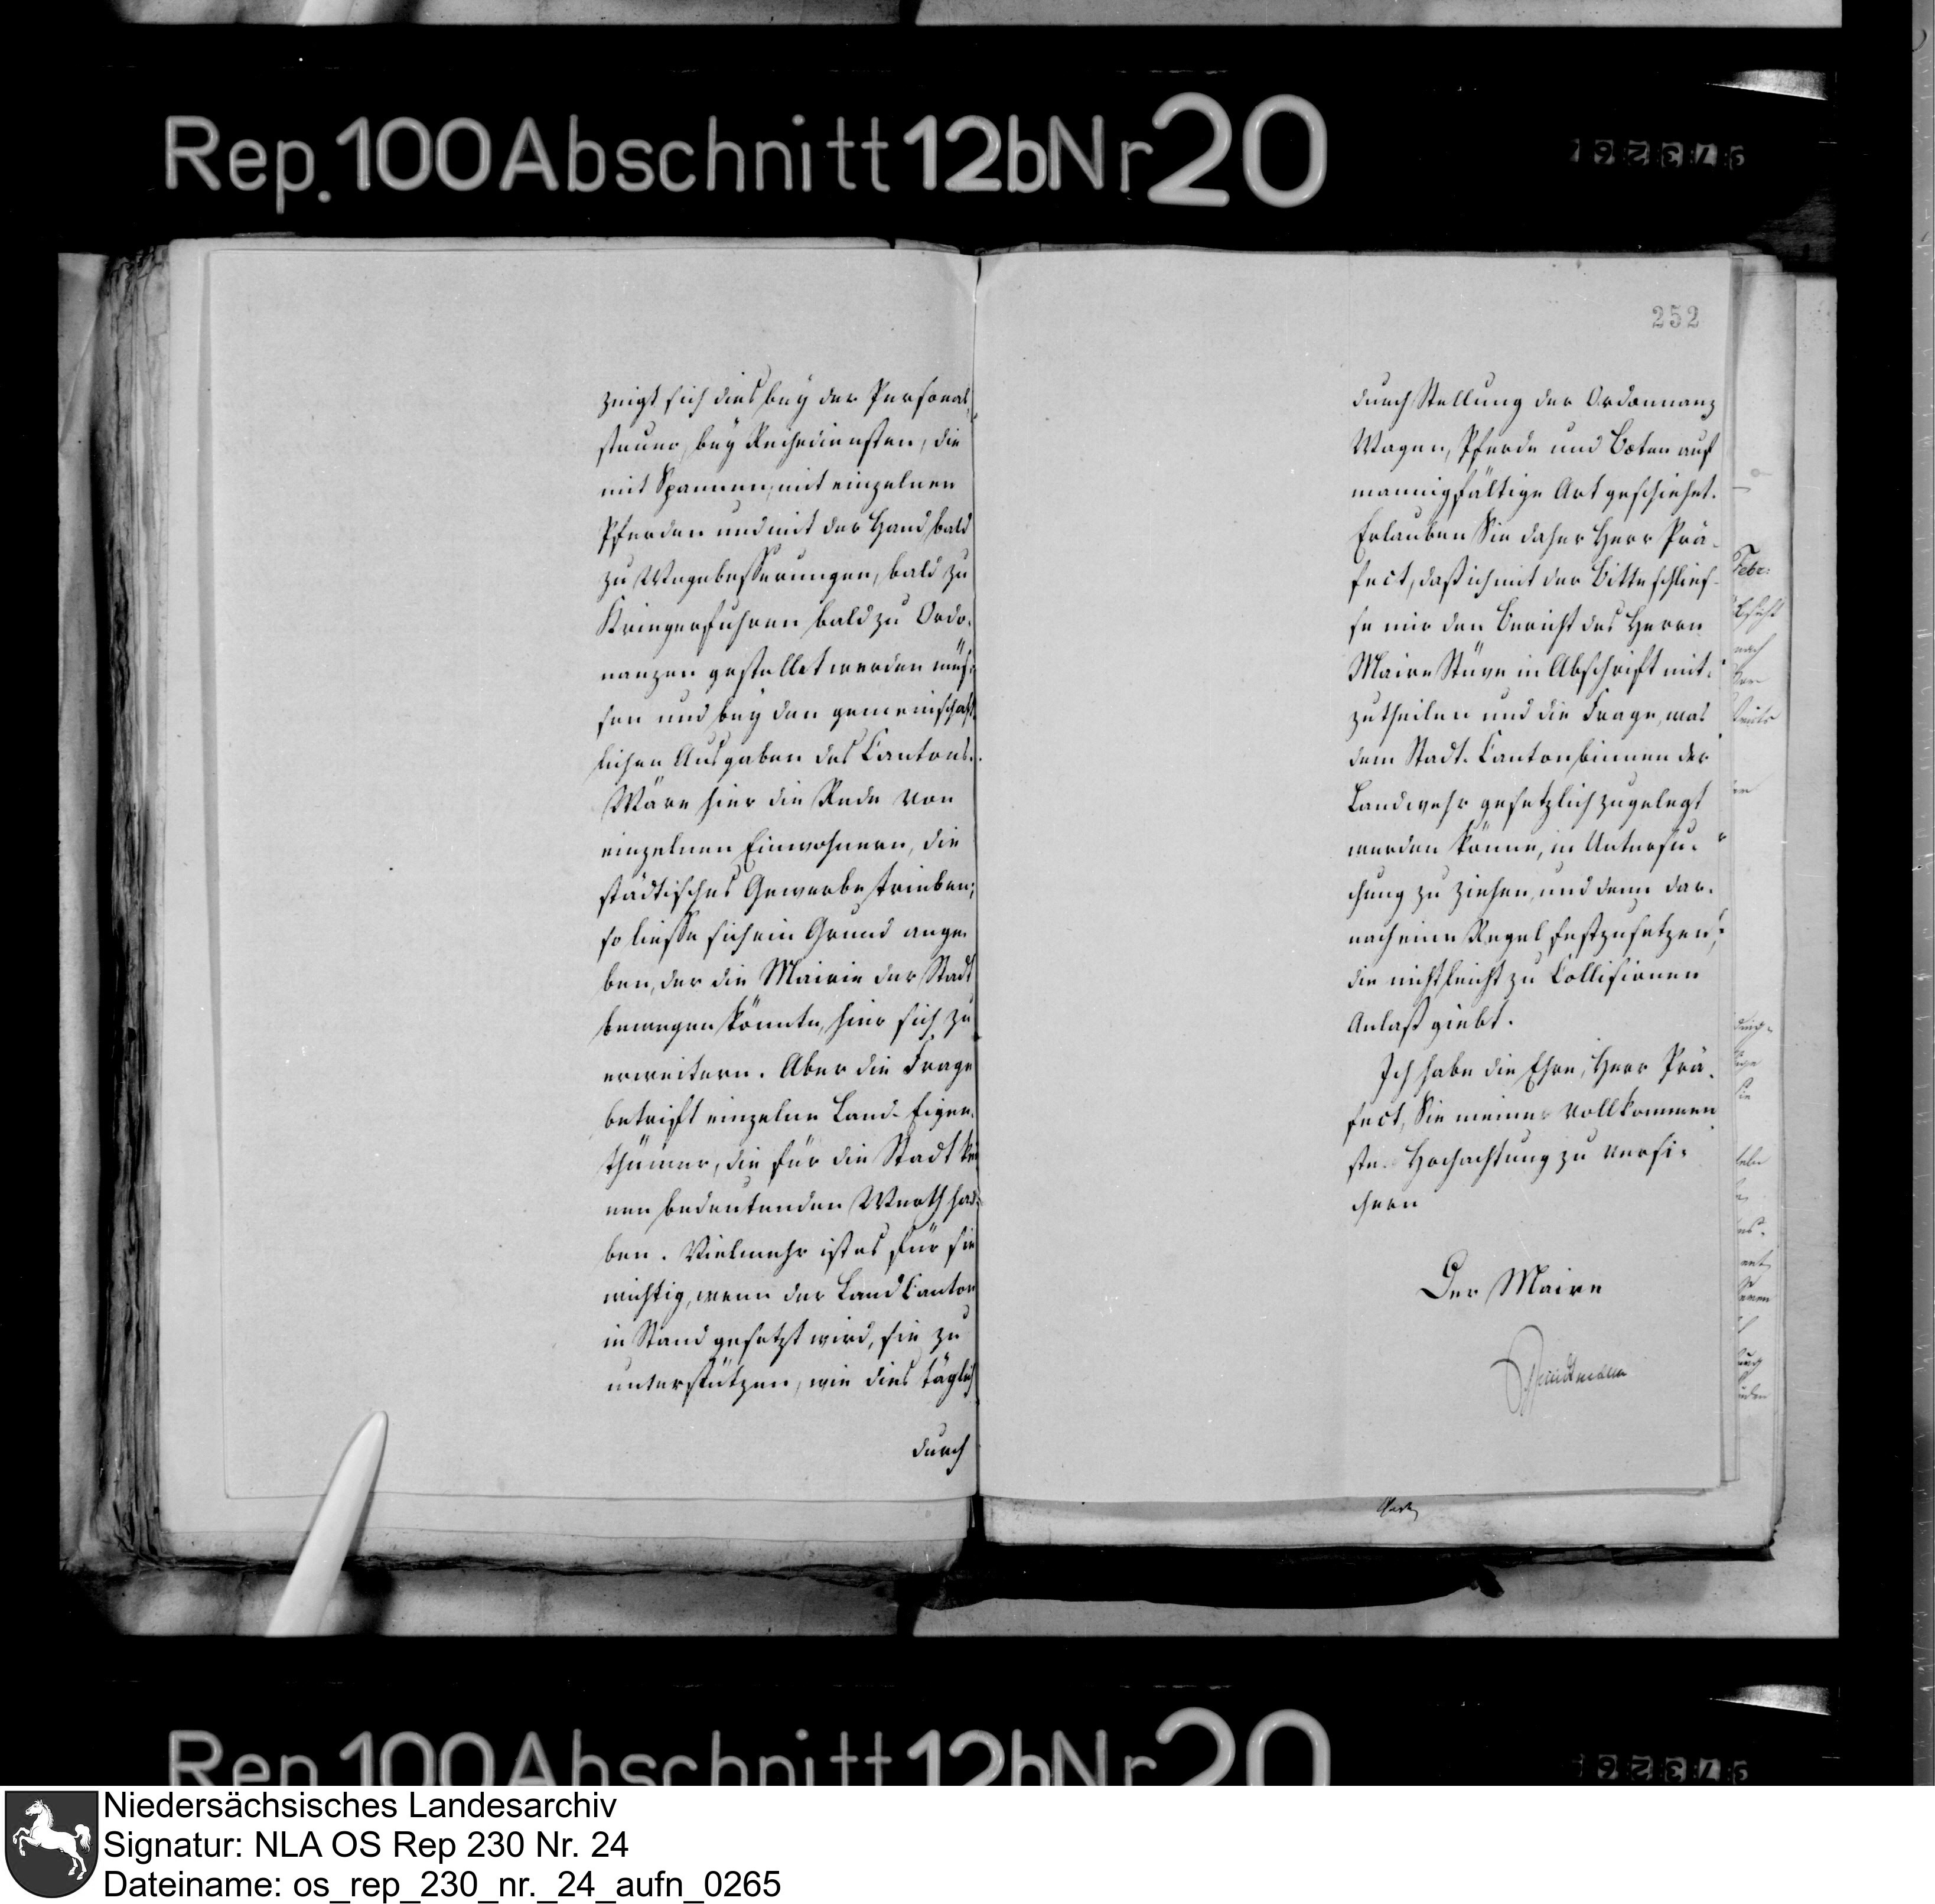 Rep. 100 Abschnitt 12b Nr 20
252
zeigt sich dies bey der Personal-
steuer, bey Reihediensten, die
mit Spannen, mit einzelnen
Pferden und mit der Hand, bald
zu Wegebesserungen, bald zu
Kriegerfuhren bald zu Ordo-
nanzen gestellet werden müs-
sen und bey den gemeinschaft-
lichen Ausgaben des Cantons.
Wäre hier die Rede von
einzelnen Einwohnern, die
städtisches Gewerbe trieben;
so liesse sich ein Grund ange-
ben, der die Mairie der Stadt
bewegen könnte, hier sich zu
erweitern. Aber die Frage
betrift einzelne Land-Eigen-
thümer, die für die Stadt kei
nen bedeutenden Werth ha-
ben. Vielmehr ist es für sie
wichtig, wenn der Land Canton
in Stand gesetzt wird, sie zu
unterstützen, wie dies täglich
durch
durch Stellung der Ordonnanz
Wagen, Pferde und Boten auf
mannigfältige Art geschiehet.
Erlauben Sie daher Herr Prä-
fect, daß ich mit der Bitte schlies-
se mir den Bericht des Herrn
Maire Stüve in Abschrift mit-
zutheilen und die Frage, was
dem Stadt-Canton binnen der
Landwehr gesetzlich zugelegt
werden könne, in Untersu-
chung zu ziehen, und denn dar-
nach eine Regel festzusetzen,
die nicht leicht zu Collisionen
Anlaß giebt.
Ich habe die Ehre, Herr Prä-
fect, Sie meiner vollkommen
sten Hochachtung zu versi-
chern
Der Maire
Febr:
nach
Rep. 100 Abschnitt 12b Nr 20
Niedersächsisches Landesarchiv
Signatur: NLA OS Rep 230 Nr. 24
Dateiname: os_rep_230_nr._24_aufn_0265